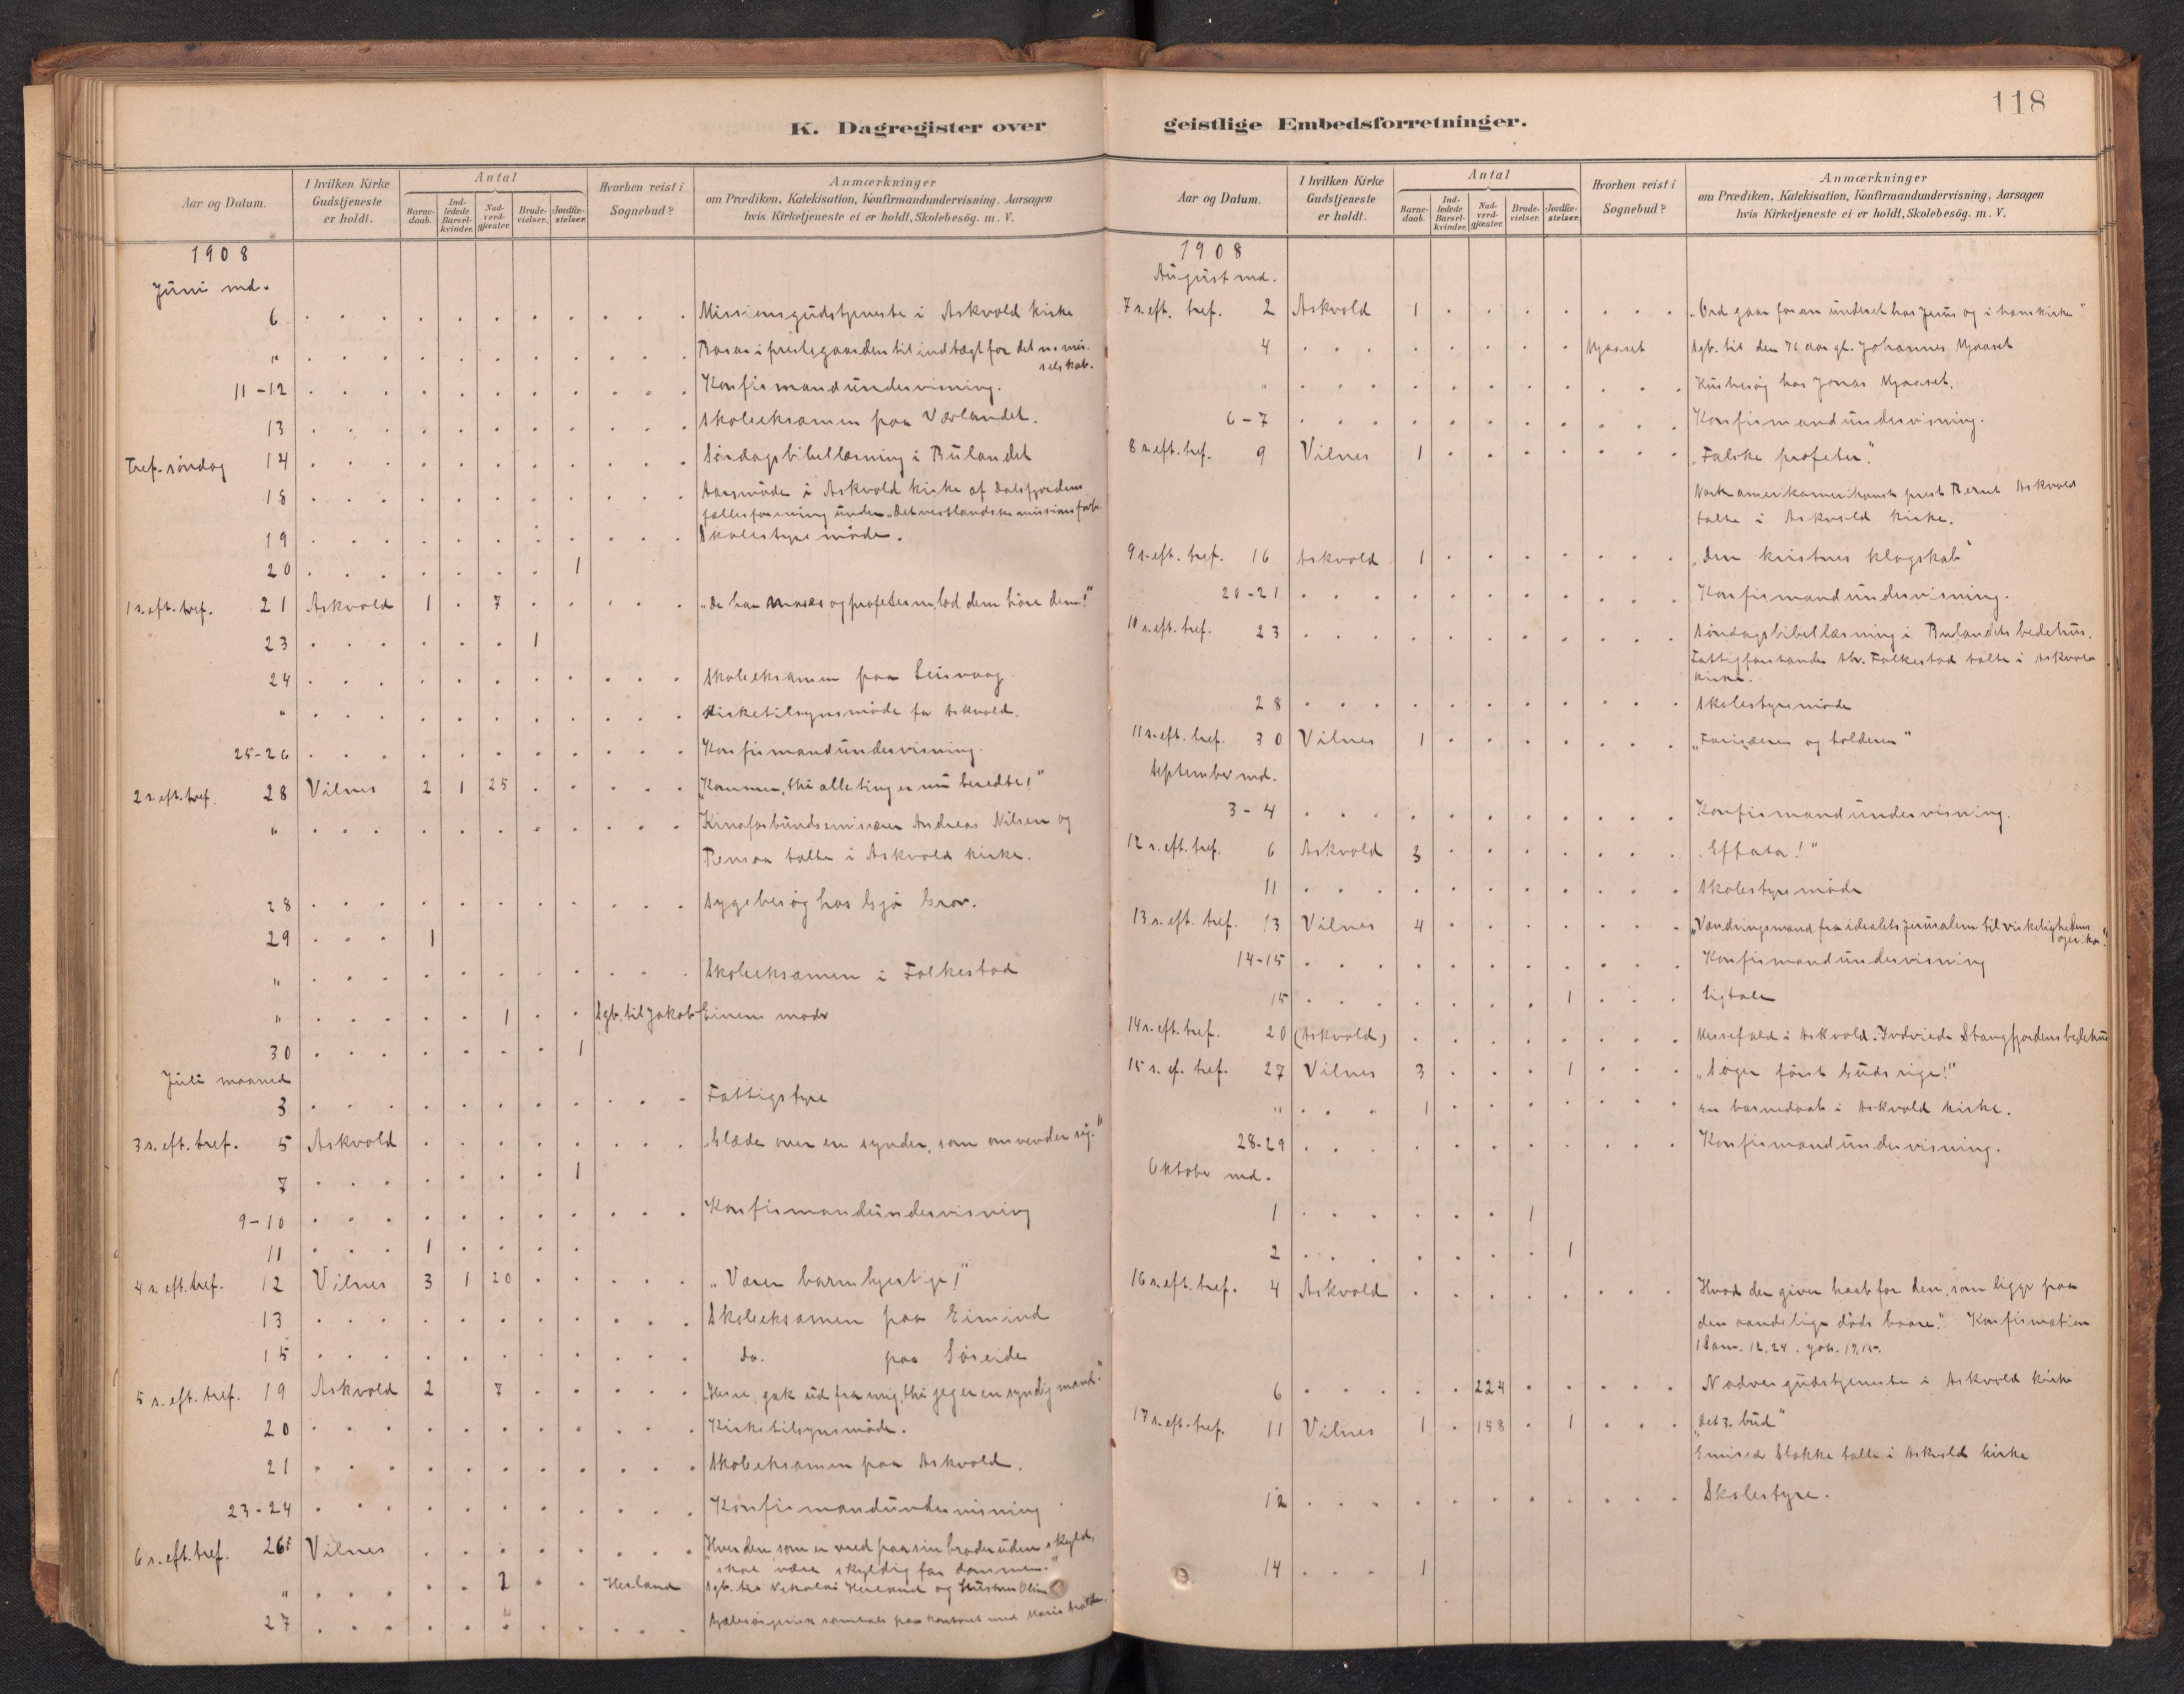 118
K. Dagregister over
Aar og Datum.
I hvilken Kirke Gudstjeneste er holdt.
Antal
Barne-daab.
Ind-ledede Barsel-kvinder.
Nad-verd-gjæster.
Brude-vielser.
Jordfæ-stelser.
Hvorhen reist i Sognebud?
Anmærkninger
om Prædiken, Katekisation, Konfirmandundervisning, Aarsagen
hvis Kirketjeneste ei er holdt, Skolebesög. m. V.
1908
Juni md.
6 Missionsgudstjeneste i Askvold kirke
" Basar i prestegaarden til indtægt for det n. mis.
selskab.
11-12 Konfirmandundervisning.
13 Skoleeksamen paa Værlandet.
Tref. søndag 14 Søndagsbibellæsning i Bulandet
18 Aarsmøde i Askvold kirke af Dalsfjordens
fællesforening under "Det vestlandske missionsforb.
19 Skolestyremøde.
20 1
1 s. eft. tref. 21 Askvold 1 7 "De har Moses og profeterne, lad dem höre dem!"
23 1
24 Skoleeksamen paa Leirvaag
" Kirketilsynsmöde for Askvold.
25-26 Konfirmandundervisning.
2 s. eft. tref. 28 Vilnes 2 1 25 "Kommer, thi alle ting er nu beredte!"
" Kinaforbundsemissær Andreas Nilsen og
talte i Askvold kirke.
28 Sygebesög hos Grov.
29 1
" Skoleeksamen i Folkestad
" 1 Sgb. til Jakob Einens moder
30 1
Juli maaned
3 Fattigstyre
3 s. eft. tref. 5 Askvold "Glæde over en synder, som omvender sig."
7 1
9-10 Konfirmandundervisning
11 1
4 s. eft. tref. 12 Vilnes 3 1 20 "Værer barmhjertige!"
13 Skoleeksamen paa Eimind
15 do. paa Söreide
5 s. eft. tref. 19 Askvold 2 7 "Herre, gak ud fra mig, thi jeg er en syndig mand."
20 Kirketilsynsmöde.
21 Skoleeksamen paa Askvold.
23-24 Konfirmandundervisning
6 s. eft. tref. 26 Vilnes "Hver den som er vred paa sin broder uden skyld,
skal være skyldig for dommen."
" 2 Herland Sgb. til Nikolai Herland og hustru Oline
27 Sjælesörgerisk samtale paa kontoret med Marie
geistlige Embedsforretninger.
Aar og Datum.
I hvilken Kirke Gudstjeneste er holdt.
Antal
Barne-daab.
Ind-ledede Barsel-kvinder.
Nad-verd-gjæster.
Brude-vielser.
Jordfæ-stelser.
Hvorhen reist i Sognebud?
Anmærkninger
om Prædiken, Katekisation, Konfirmandundervisning, Aarsagen
hvis Kirketjeneste ei er holdt, Skolebesög. m. V.
1908
August md.
7 s. eft. tref. 2 Askvold 1 "Ord gaar foran underet hos Jesus og i hans kirke"
4 Mjaaset Sgb. til den 76 aar gl. Johannes Mjaaset
" Husbesög hos Jonas Mjaaset.
6-7 Konfirmandundervisning.
8 s. eft. tref. 9 Vilnes 1 "Falske profeter."
Norskamerikansk prest Bernt Askvold
talte i Askvold kirke.
9 s. eft. tref. 16 Askvold 1 "Den kristnes klogskab"
20-21 Konfirmandundervisning.
10 s. eft. tref. 23 Söndagsbibellæsning i Bulandets bedehus.
Fattigforstander Folkestad talte i Askvold
kirke.
28 Skolestyremöde
11 s. eft. tref. 30 Vilnes 1 "Farisæeren og tolderen"
September md.
3-4 Konfirmandundervisning.
12 s. eft. tref. 6 Askvold 3 "Effata!"
11 Skolestyremöde
13 s. eft. tref. 13 Vilnes 4 "Vandringsmand fra idealets Jerusalem til virkelighedens
Jeriko."
14-15 Konfirmandundervisning
15 1 Ligtale
14 s. eft. tref. 20 (Askvold) Messefald i Askvold. Indviede Stangfjordens bedehus
15 s. ef. tref. 27 Vilnes 3 1 "Söger först Guds rige!"
" 1 En barnedaab i Askvold kirke.
28-29 Konfirmandundervisning.
Oktober md.
1 1
2 1
16 s. eft. tref. 4 Askvold Hvad der giver haab for den, som ligger paa
den aandelige döds baare." Konfirmation
1 Sam. 12, 24. Job. 19,
6 224 Nadvergudstjeneste i Askvold kirke
17 s. eft. tref. 11 Vilnes 1 158 1 "Det 3. bud"
Emissær Stokke talte i Askvold kirke
12 Skolestyre.
14 1